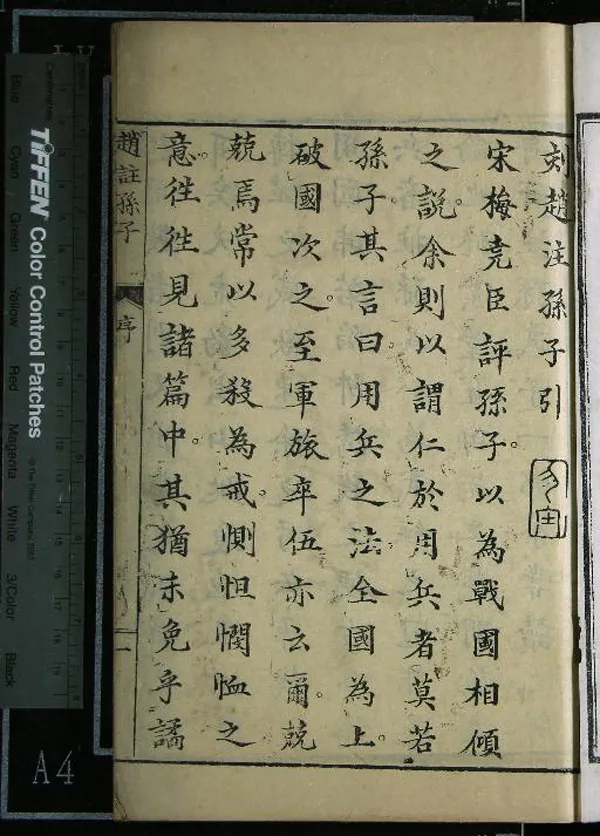 刻趙注孫子引
宋梅堯臣評孫子。以為戰國相傾
之說。余則以謂仁於用兵者莫若
孫子。其言曰。用兵之法。全國為上。
破國次之。至軍旅卒伍亦云爾。兢
兢焉常以多殺為戒。惻怛憫恤之
意。往往見諸篇中。其猶未免乎譎
趙註孫子
序
一
TIFFEN Color Control Patches
© The Tiffen Company, 2007
Centimetres
Blue
Cyan
Green
Yellow
Red
Magenta
White
3/Color
Black
A4